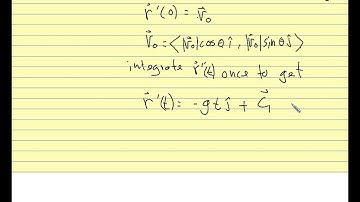 r⃗'(0) = v⃗₀
v⃗₀ = ⟨|v⃗₀|cosθ î, |v⃗₀|sinθ ĵ⟩
integrate r⃗''(t) once to get
r⃗'(t) = -gt ĵ + C⃗₁